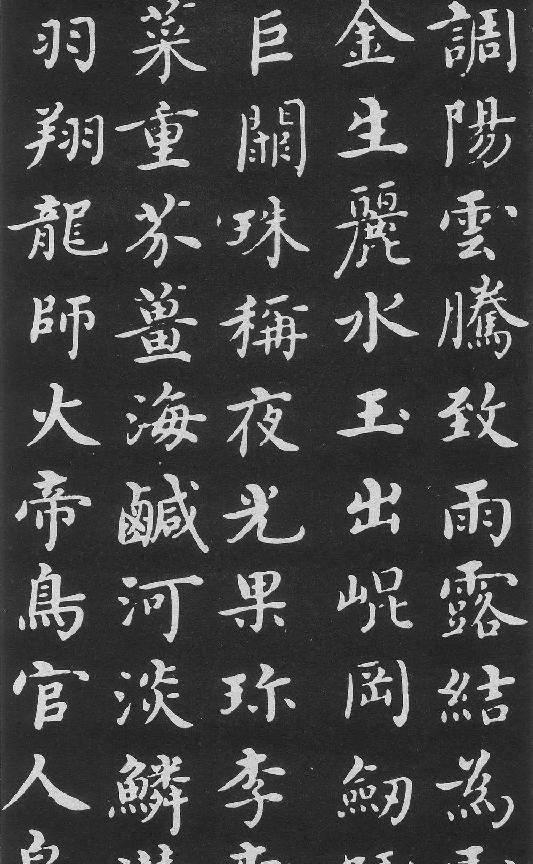 調陽雲騰致雨露結為
金生麗水玉出崐岡劒
巨闕珠稱夜光果珎李
菜重芥薑海鹹河淡鱗
羽翔龍師火帝鳥官人